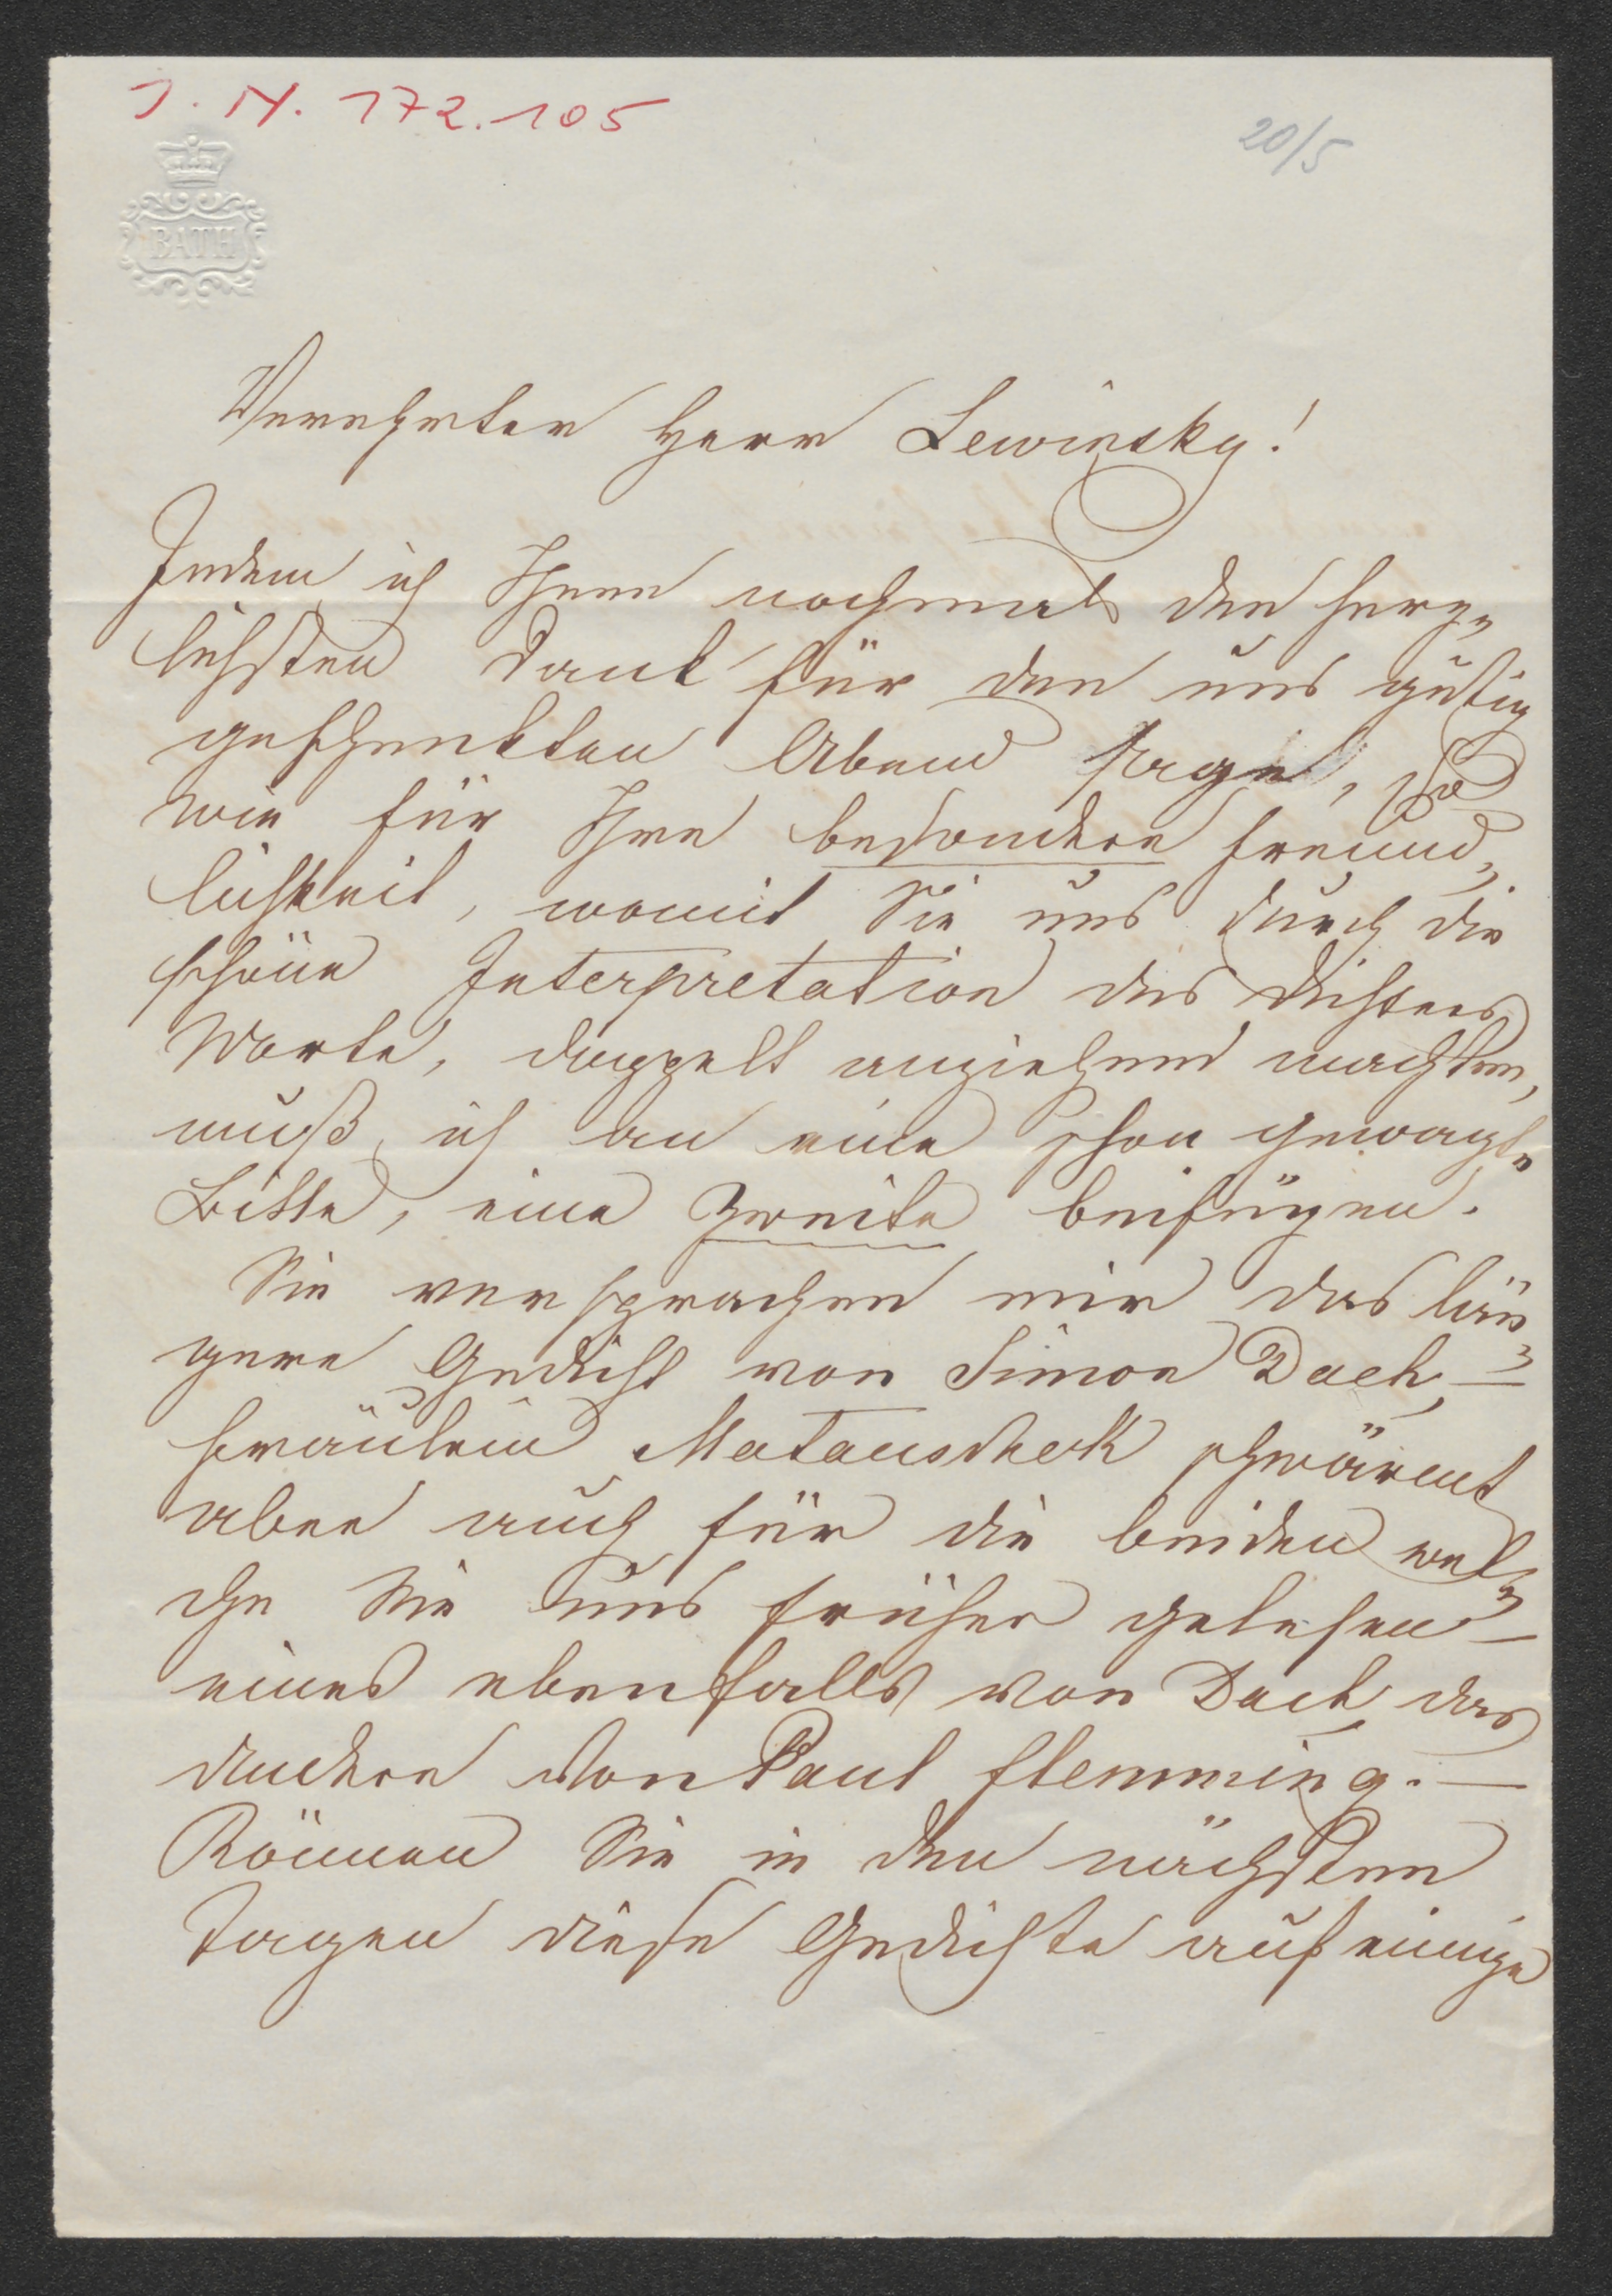 I. N. 172.105
20/5
BATH
Verehrter Herr Lewinsky!
Indem ich Ihnen nochmals den herz-
lichsten Dank für den uns gütig
geschenkten Abend sage, so
wie für Ihre besondere Freund-
lichkeit, womit Sie uns durch die
schöne Interpretation des Dichters
Worte, doppelt anziehend machten,
muß ich an eine schon gewagte
Bitte, eine zweite beifügen.
Sie versprachen mir das län-
gere Gedicht von Simon Dach, –
Fräulein schwärmt
aber auch für die beiden wel-
che Sie uns früher gelesen –
eines ebenfalls von Dach das
andere von Paul Flemming. –
Können Sie in den nächsten
Tagen diese Gedichte auf einige